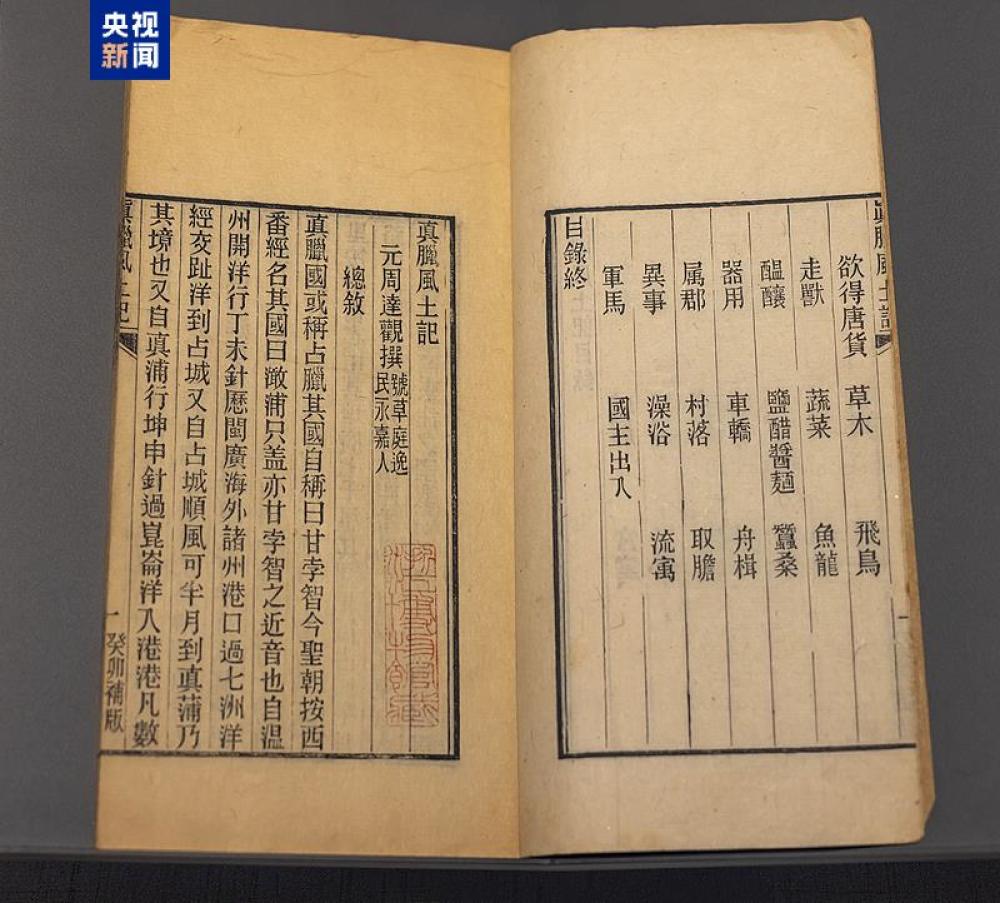 央视
新闻
真臘風土記
一
欲得唐貨 草木 飛鳥
走獸 蔬菜 魚龍
醞釀 鹽醋醬麵 蠶桑
器用 車轎 舟楫
属郡 村落 取膽
異事 澡浴 流寓
軍馬 國主出入
目錄終
真臘風土記
元周達觀撰號草庭逸民永嘉人
總敘
真臘國或稱占臘其國自稱曰甘孛智今聖朝按西
番經名其國曰澉浦只盖亦甘孛智之近音也自温
州開洋行丁未針歷閩廣海外諸州港口過七洲洋
經交趾洋到占城又自占城順風可半月到真蒲乃
其境也又自真蒲行坤申針過崑崙洋入港港凡數
真臘風土記
一
癸卯補版